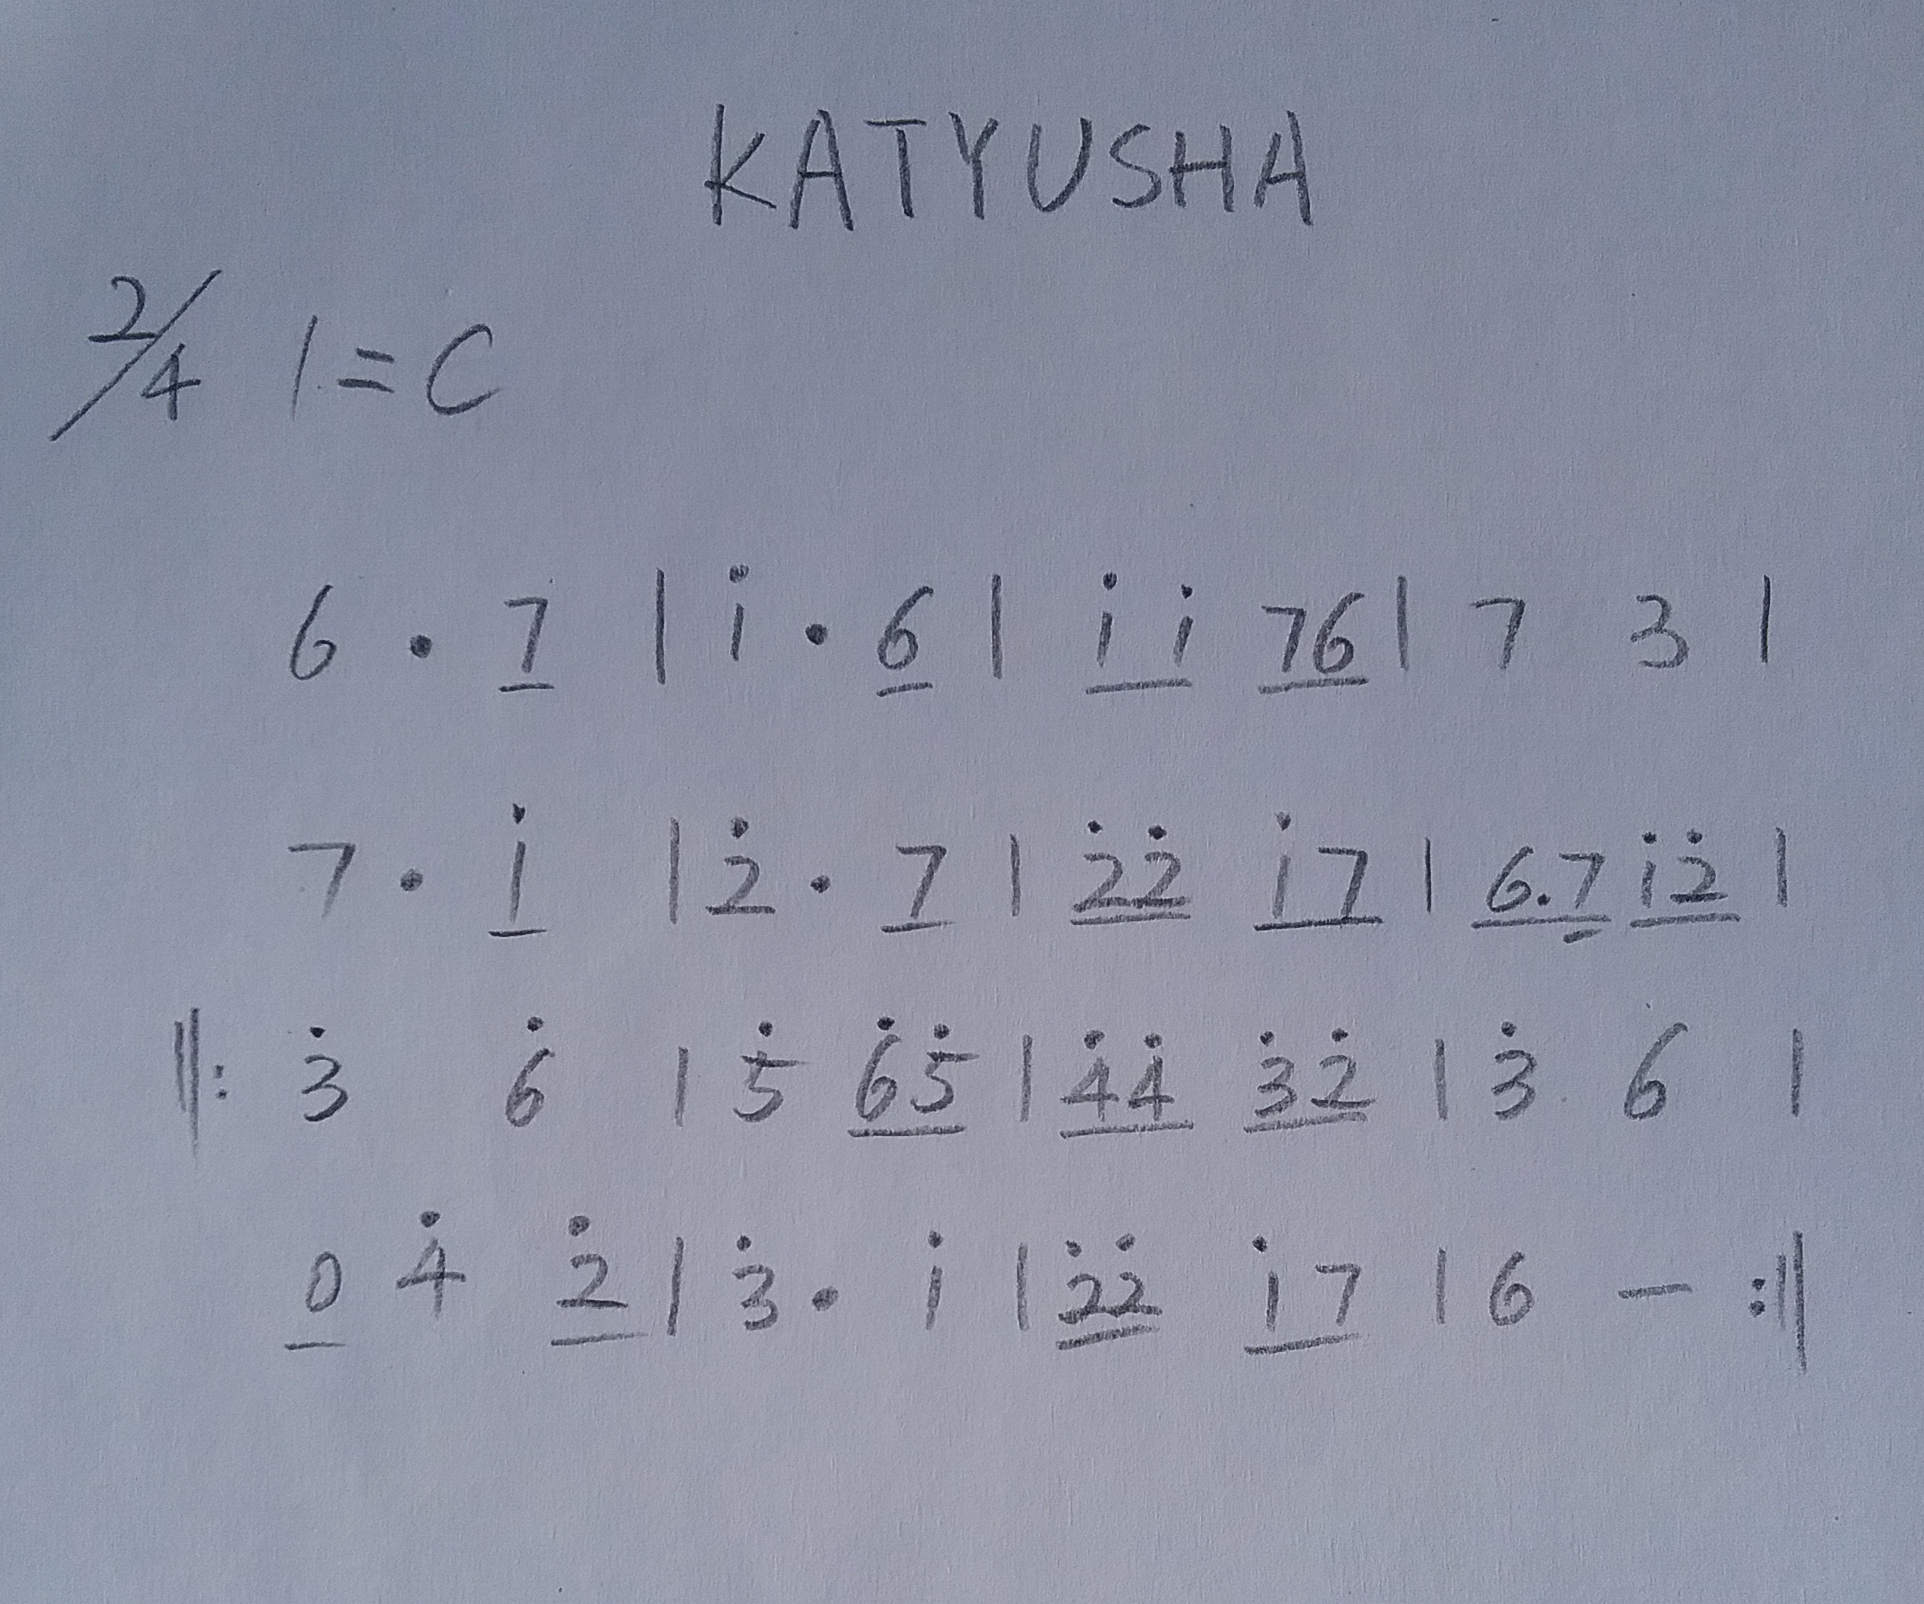 KATYUSHA
2/4 1=C
6 · 7̲ | i̇ · 6̲ | i̲̇ i̲̇ 7̲6̲ | 7 3 |
7 · 1̲̇ | 2̇ · 7̲ | 2̲̇2̲̇ 1̲̇7̲ | 6̲.7̳ 1̲̇2̲̇ |
‖: 3̇ 6̇ | 5̇ 6̲̇5̲̇ | 4̲̇4̲̇ 3̲̇2̲̇ | 3̇ 6 |
0̲ 4̇ 2̲̇ | 3̇ · i̇ | 2̲̇2̲̇ 1̲̇7̲ | 6 — :‖